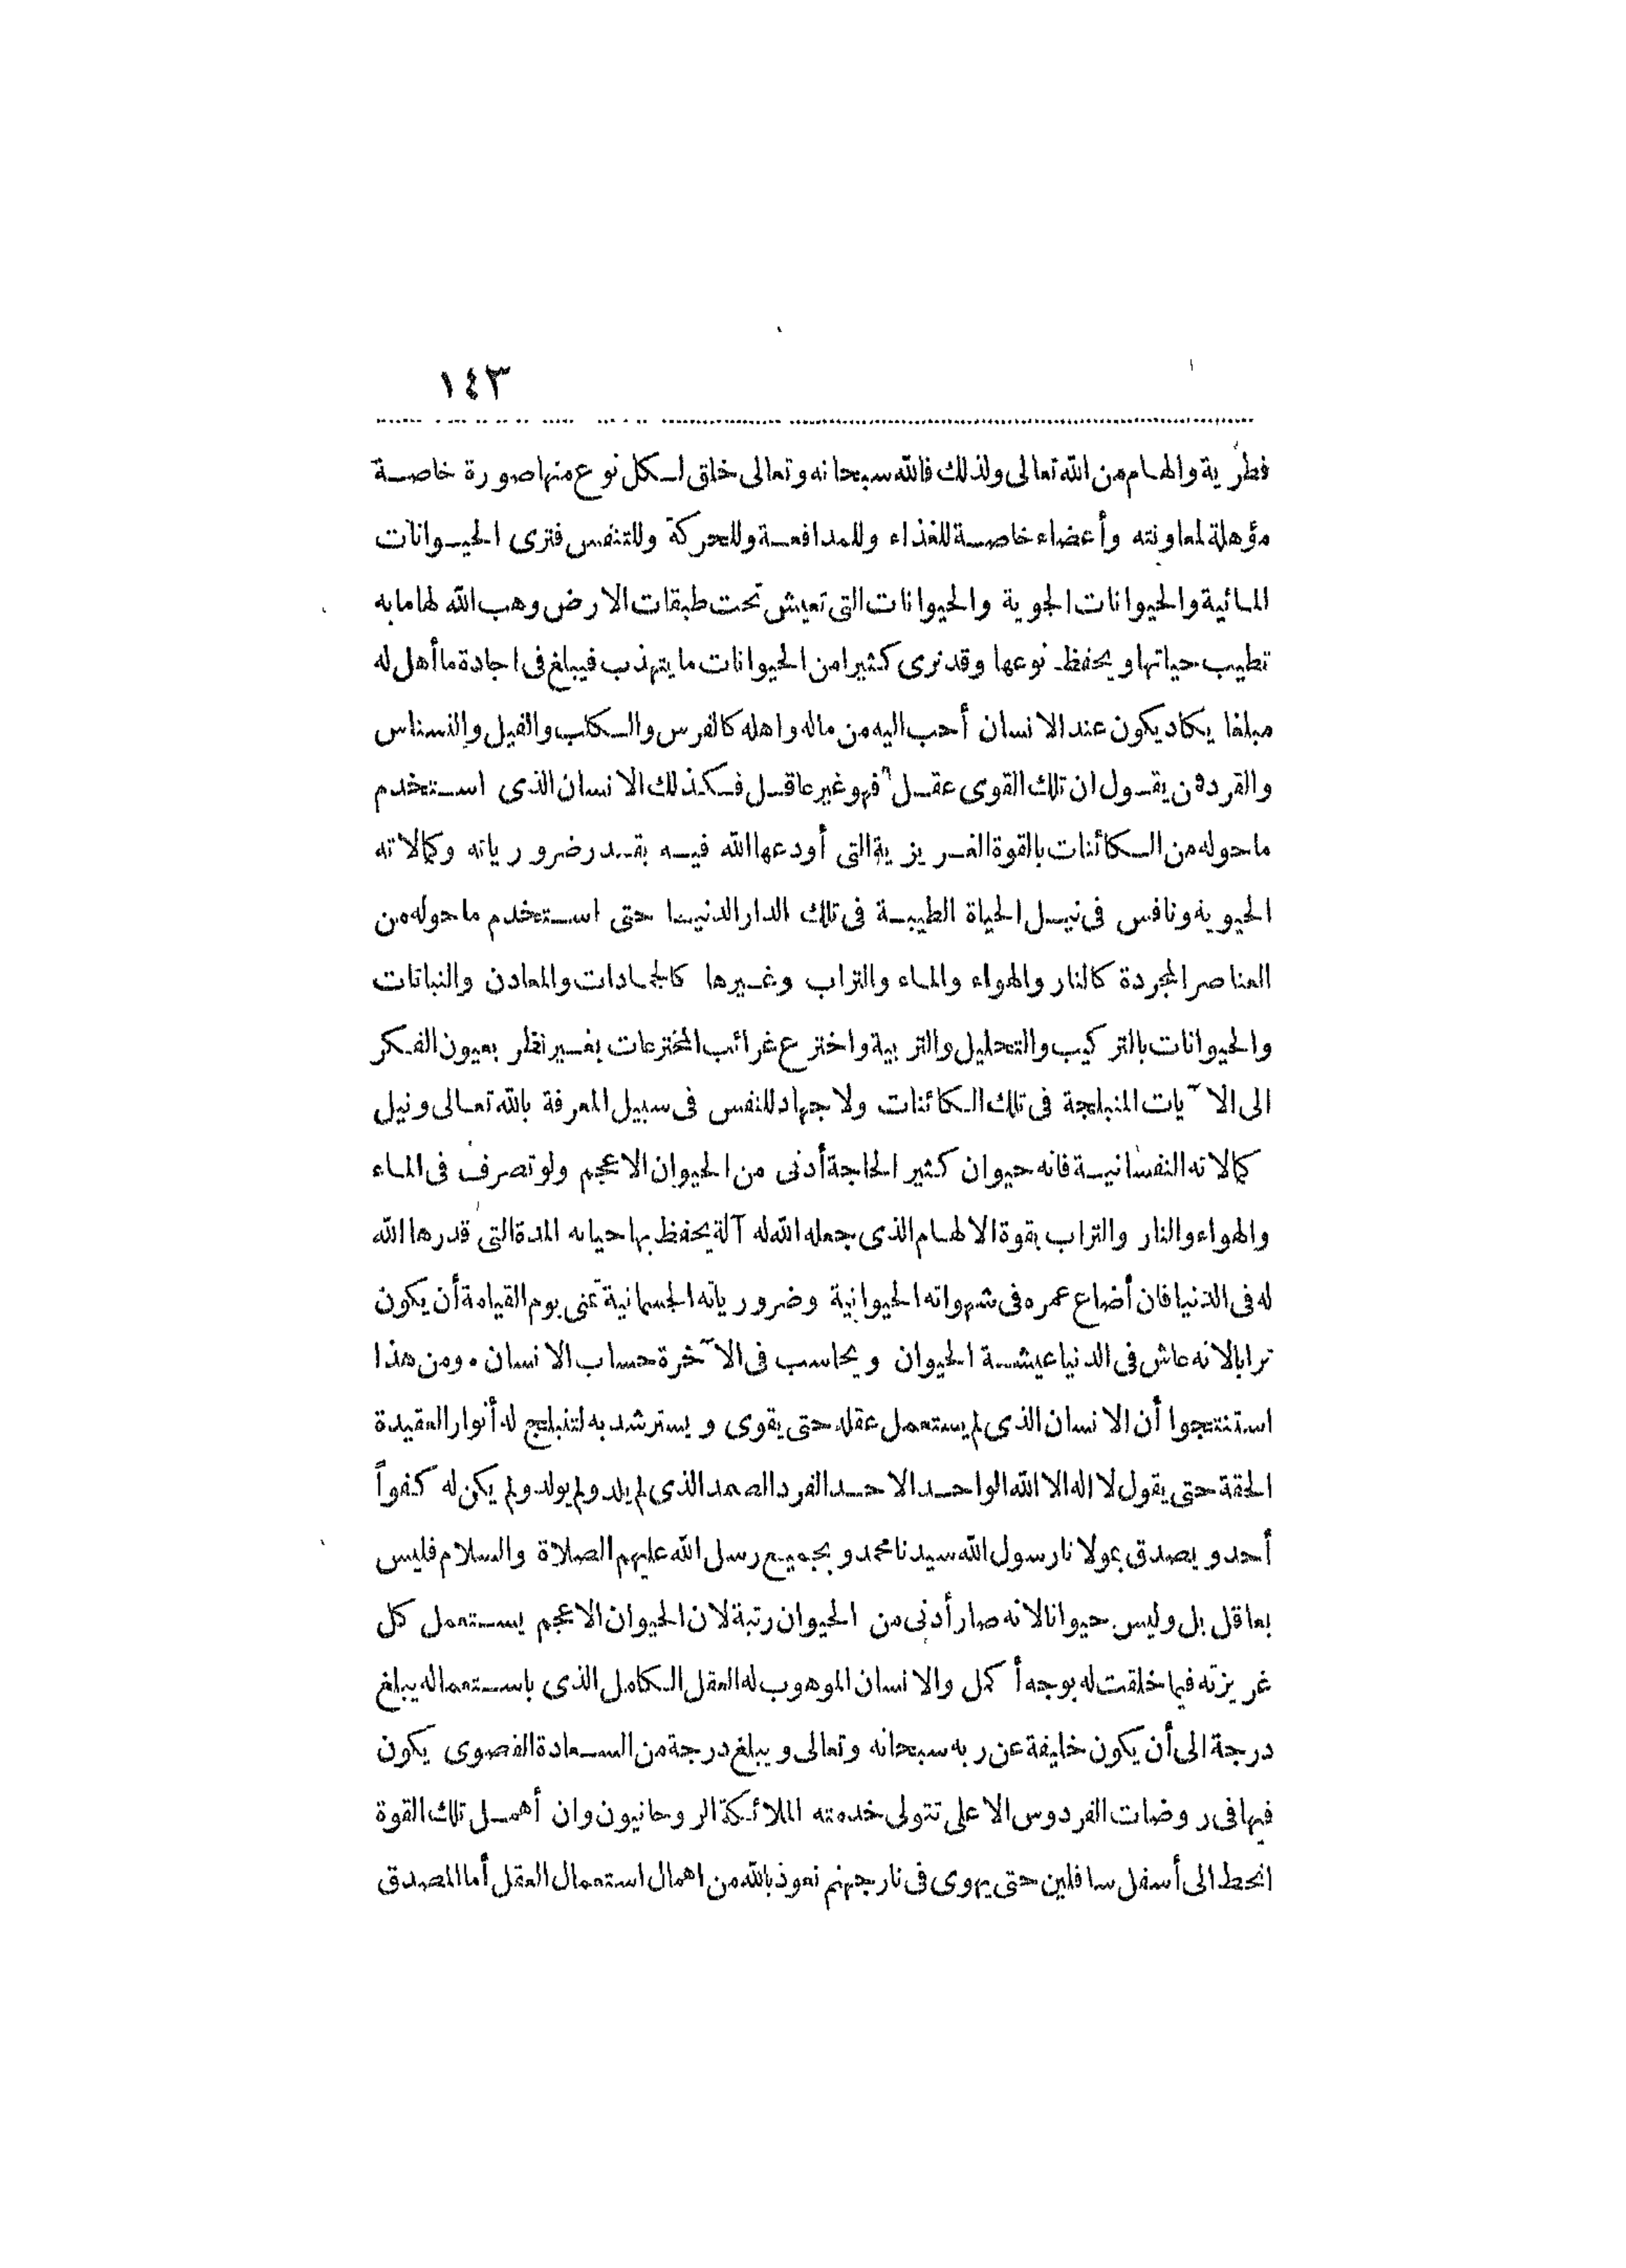 ١٤٣
فطرية والهام من الله تعالى ولذلك فالله سبحانه وتعالى خلق لكل نوع منها صورة خاصة
مؤهلة لمعاونته وأعضاء خاصة للغذاء وللمدافعة وللحركة وللتنفس فترى الحيوانات
المائية والحيوانات الجوية والحيوانات التى تعيش تحت طبقات الارض وهب الله لها ما به
تطيب حياتها ويحفظ نوعها وقد نرى كثيرا من الحيوانات ما يتهذب فيبلغ فى اجادة ما أهل له
مبلغا يكاد يكون عند الانسان أحب اليه من ماله واهله كالفرس والكلب والفيل والنسناس
والقرد فمن يقول ان تلك القوى عقل فهو غير عاقل فكذلك الانسان الذى استخدم
ما حوله من الكائنات بالقوة الغريزية التى أودعها الله فيه بقدر ضرورياته وكمالاته
الحيوية ونافس فى نيل الحياة الطيبة فى تلك الدار الدنيا حتى استخدم ما حوله من
العناصر المجردة كالنار والهواء والماء والتراب وغيرها كالجمادات والمعادن والنباتات
والحيوانات بالتركيب والتحليل والتربية واخترع غرائب المخترعات بغير نظر بعيون الفكر
الى الآيات المنبلجة فى تلك الكائنات ولا جهاد للنفس فى سبيل المعرفة بالله تعالى ونيل
كمالاته النفسانية فانه حيوان كثير الحاجة أدنى من الحيوان الاعجم ولو تصرف فى الماء
والهواء والنار والتراب بقوة الالهام الذى جعله الله له آلة يحفظ بها حياته المدة التى قدرها الله
له فى الدنيا فان أضاع عمره فى شهواته الحيوانية وضرورياته الجسمانية تمنى يوم القيامة أن يكون
ترابا لانه عاش فى الدنيا عيشة الحيوان ويحاسب فى الآخرة حساب الانسان . ومن هذا
استنتجوا أن الانسان الذى لم يستعمل عقله حتى يقوى ويسترشد به لتنبلج له أنوار العقيدة
الحقة حتى يقول لا اله الا الله الواحد الاحد الفرد الصمد الذى لم يلد ولم يولد ولم يكن له كفواً
أحد ويصدق بمولانا رسول الله سيدنا محمد وبجميع رسل الله عليهم الصلاة والسلام فليس
بعاقل بل وليس حيوانا لانه صار أدنى من الحيوان رتبة لان الحيوان الاعجم يستعمل كل
غريزته فيما خلقت له بوجه أكمل والانسان الموهوب له العقل الكامل الذى باستعماله يبلغ
درجة الى أن يكون خليفة عن ربه سبحانه وتعالى ويبلغ درجة من السعادة القصوى يكون
فيها فى روضات الفردوس الاعلى تتولى خدمته الملائكة الروحانيون وان أهمل تلك القوة
انحط الى أسفل سافلين حتى يهوى فى نار جهنم نعوذ بالله من اهمال استعمال العقل أما المصدق